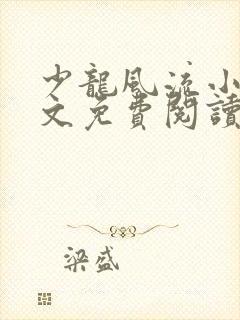 少龍風流小
文免費閱讀
梁盛